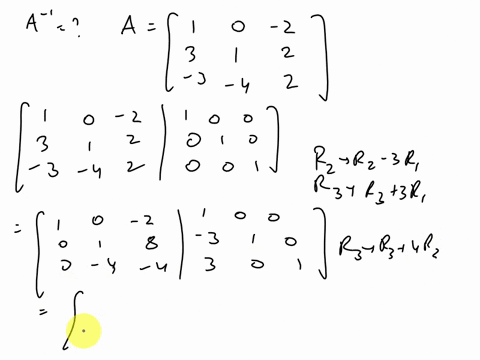 A⁻¹ = ? A = [ 1 0 -2
3 1 2
-3 -4 2 ]
[ 1 0 -2 | 1 0 0
3 1 2 | 0 1 0
-3 -4 2 | 0 0 1 ]
R₂ → R₂ - 3R₁
R₃ → R₃ + 3R₁
= [ 1 0 -2 | 1 0 0
0 1 8 | -3 1 0
0 -4 -4 | 3 0 1 ] R₃ → R₃ + 4R₂
= [